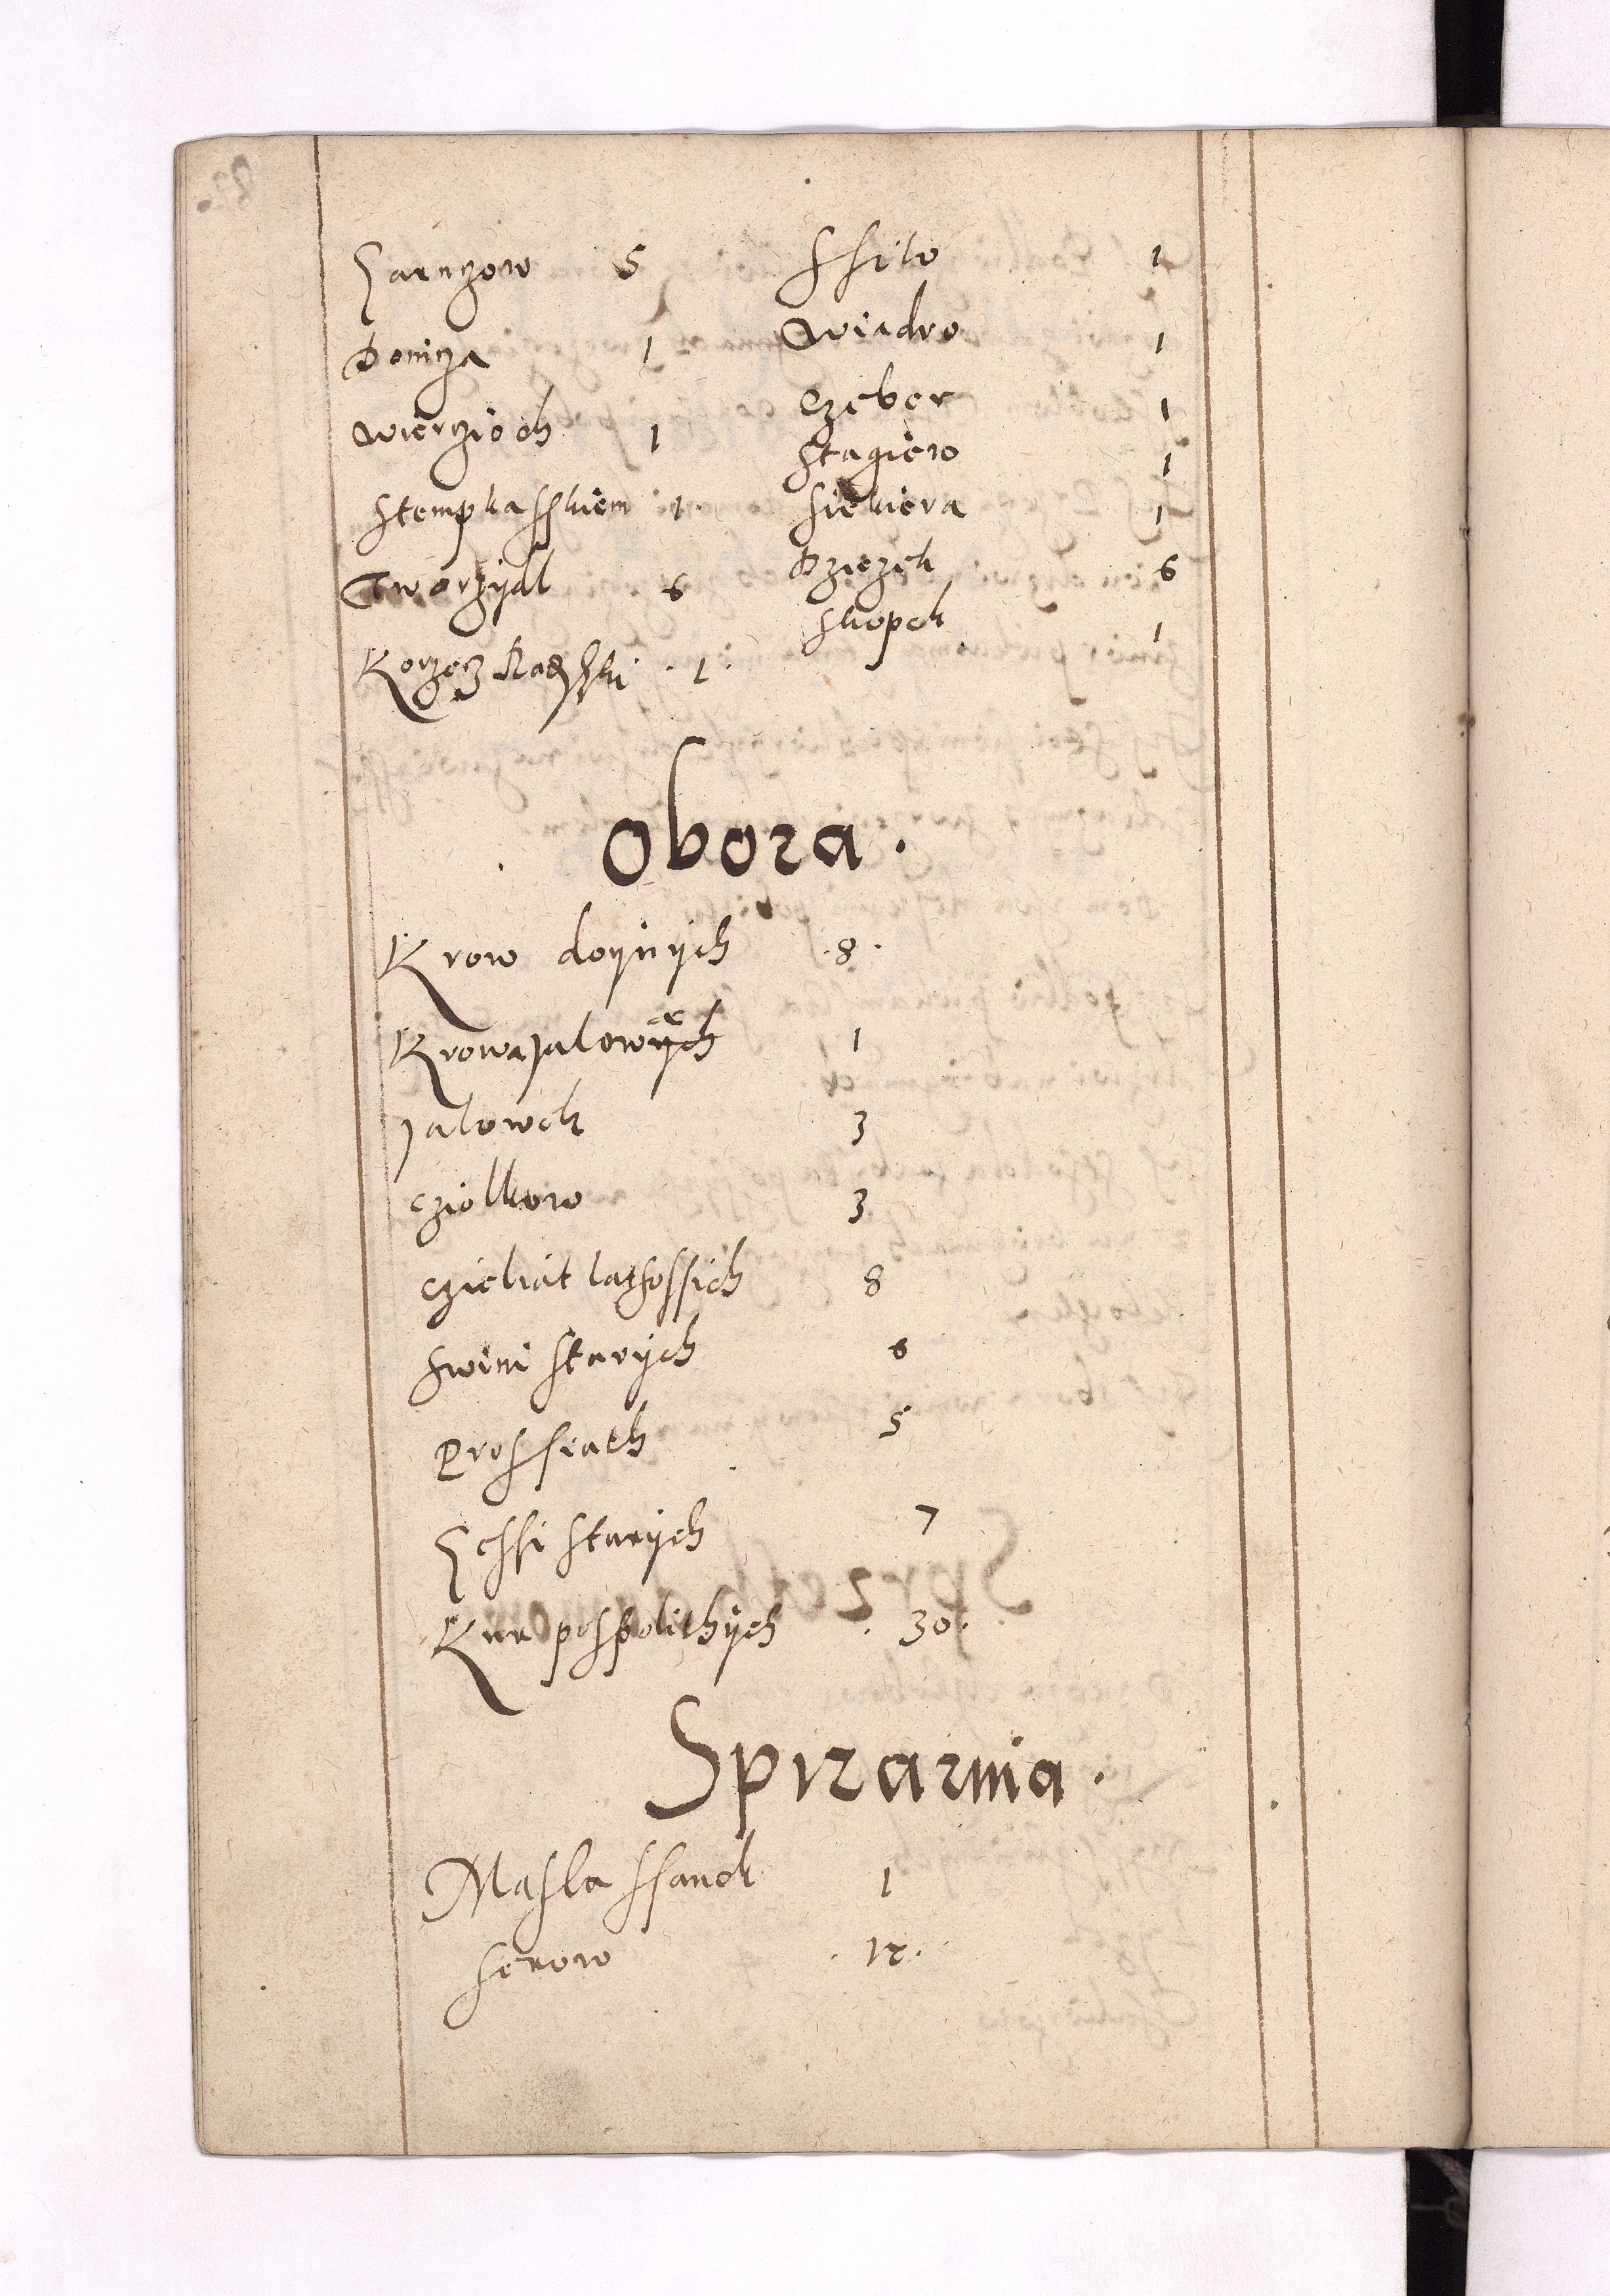 Garnczow 5
Donicza 1
Wierczioch 1
Stempka sskiem 1.
Tworzydl 6
Korzecz Radzski .1.
Ssito 1
Wiadro 1
Czeber 1
Stagiew 1
Siekiera 1
Dziezek 6
Skopek 1
Obora.
Krow doynych .8.
Krowa Jalowych 1
Jalowek 3
Cziolkow 3
Czieliąt lathossich 8
Swini starych 6
Prossiath 5
Gessi starych 7
Kur pospolithych .30.
Spizarnia.
Masla ssanek 1
Serow .12.